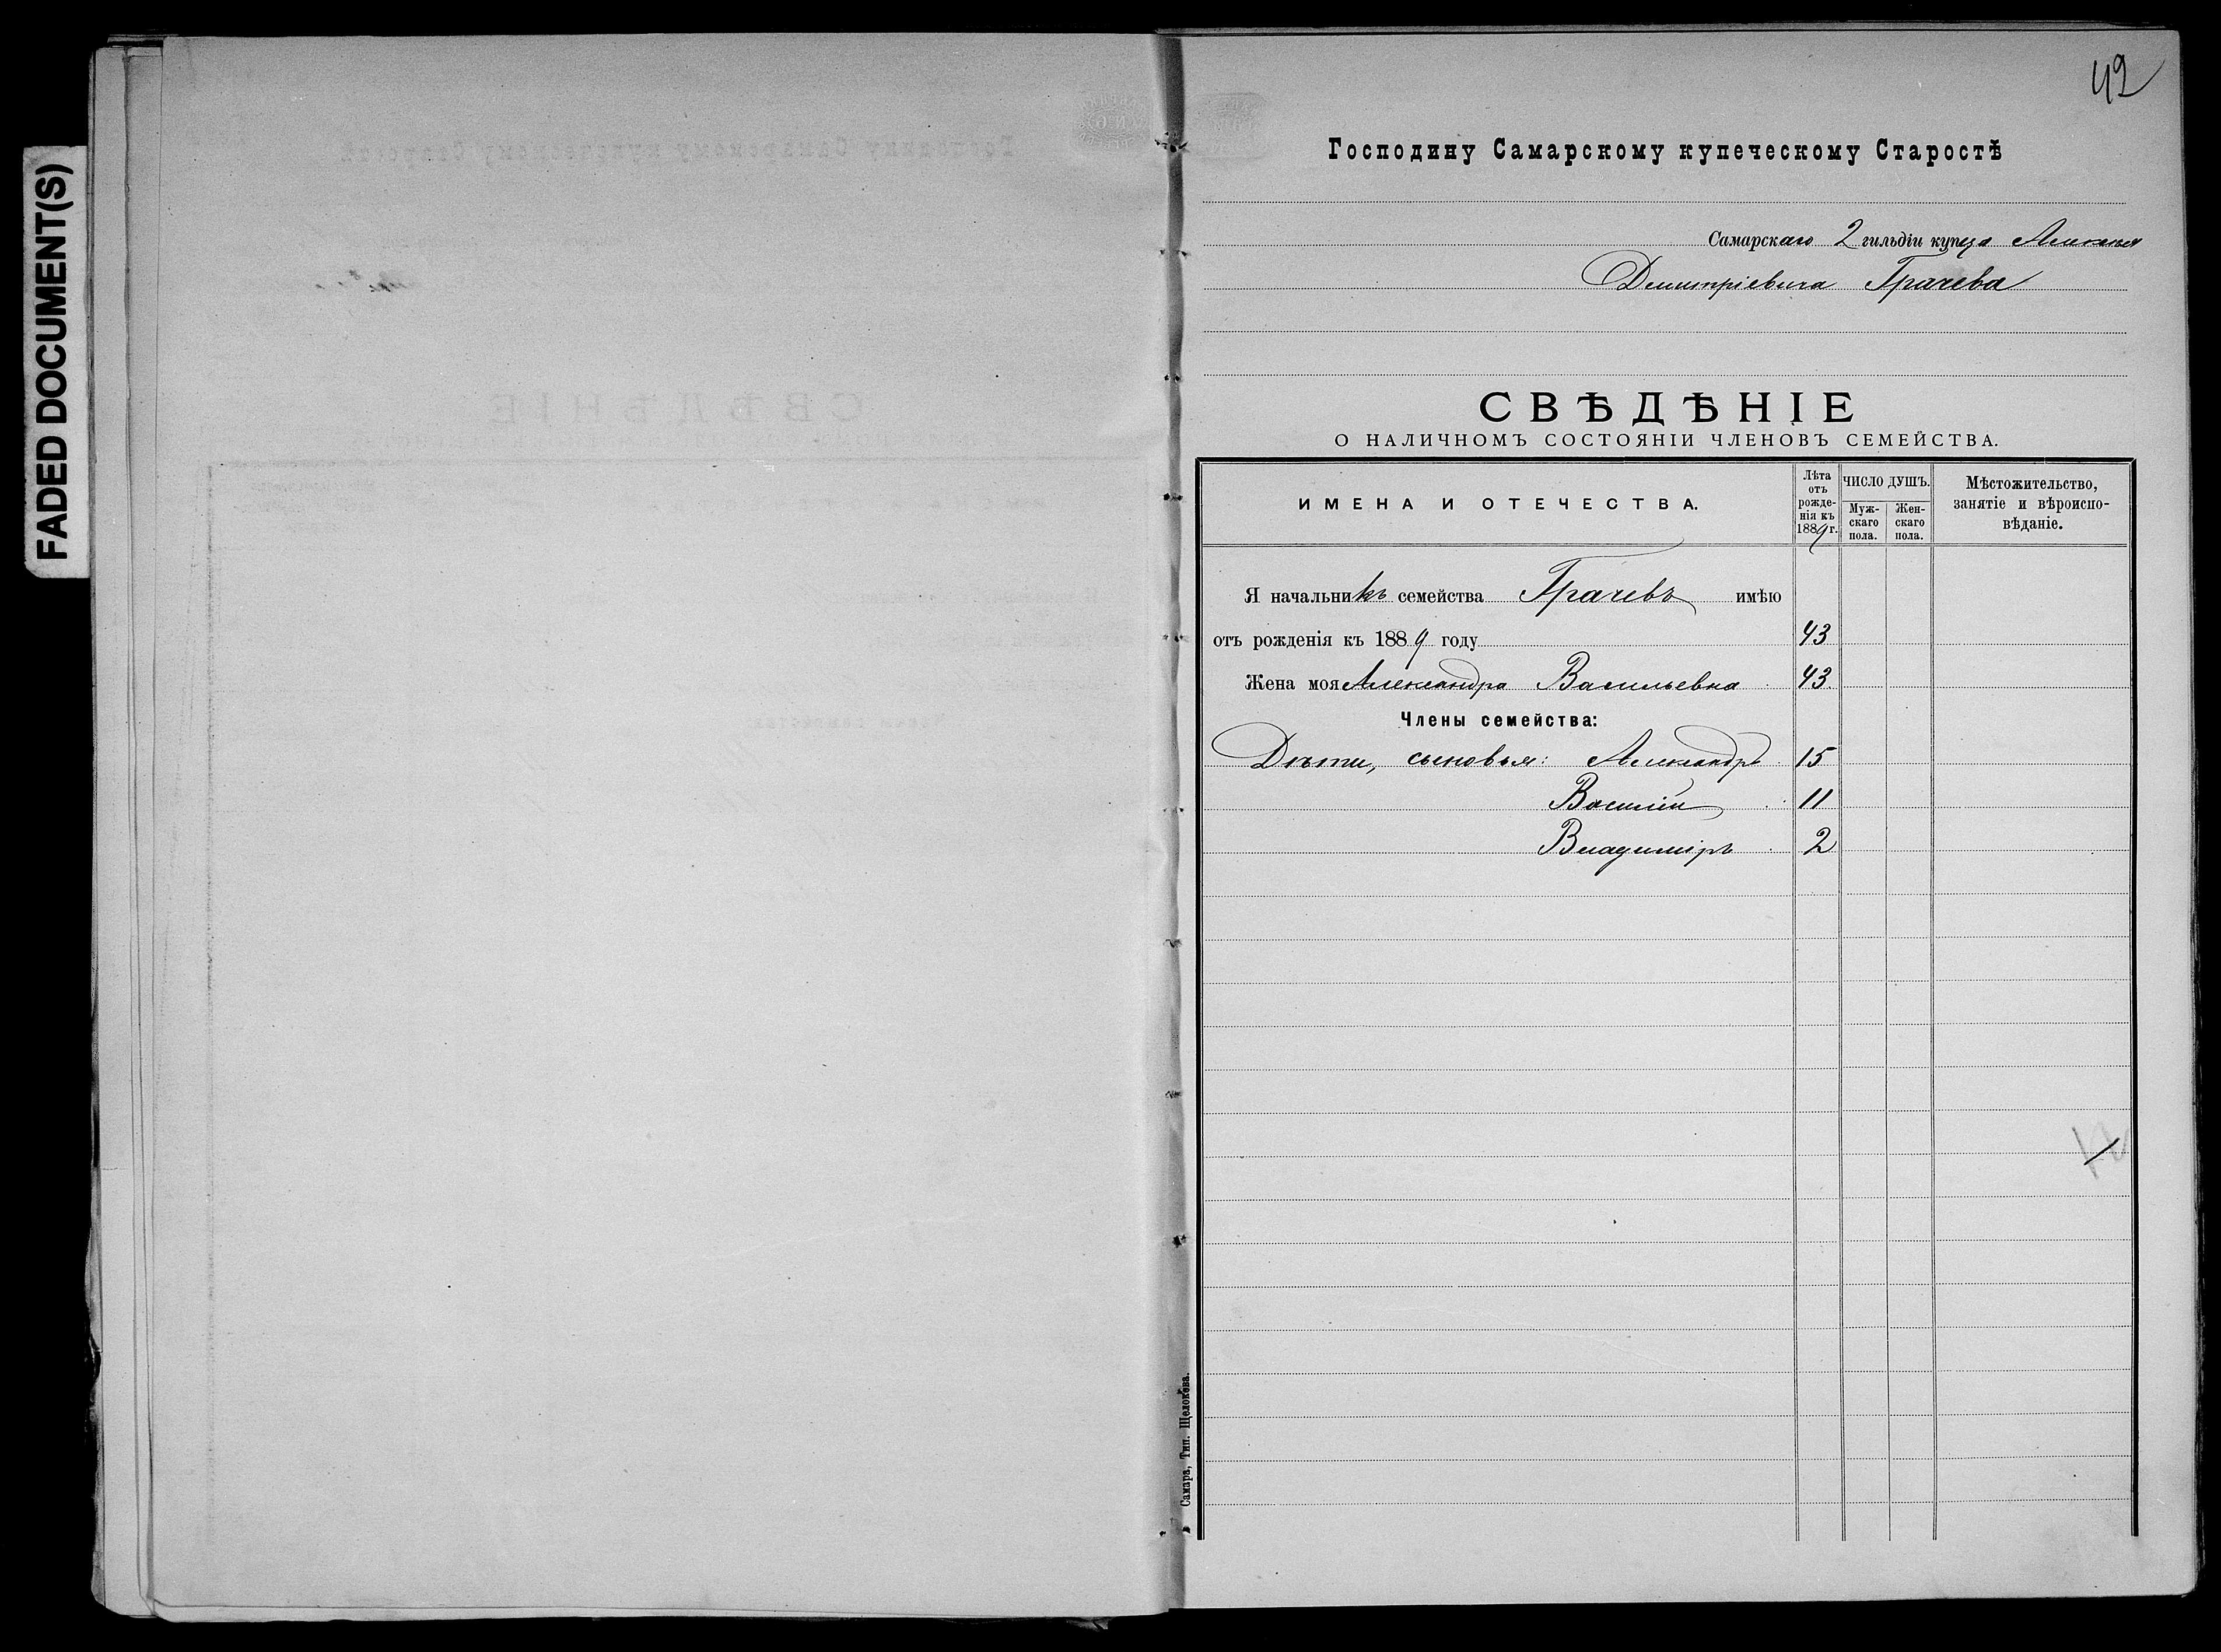 FADED DOCUMENT(S)
42
Господину Самарскому купеческому Старостѣ
Самарскаго 2 гильдіи купца Алексѣя
Димитріевича Грачева
СВѢДѢНІЕ
О НАЛИЧНОМЪ СОСТОЯНІИ ЧЛЕНОВЪ СЕМЕЙСТВА.
ИМЕНА И ОТЕЧЕСТВА.
Лѣта отъ рожде-нія къ 1889 г.
ЧИСЛО ДУШЪ.
Муж-скаго пола.
Жен-скаго пола.
Мѣстожительство, занятіе и вѣроиспо-вѣданіе.
Я начальникъ семейства Грачевъ имѣю
отъ рожденія къ 1889 году 43
Жена моя Александра Васильевна 43
Члены семейства:
Дѣти, сыновья: Александръ 15
Василій 11
Владиміръ 2
Самара, Тип. Щелокова.